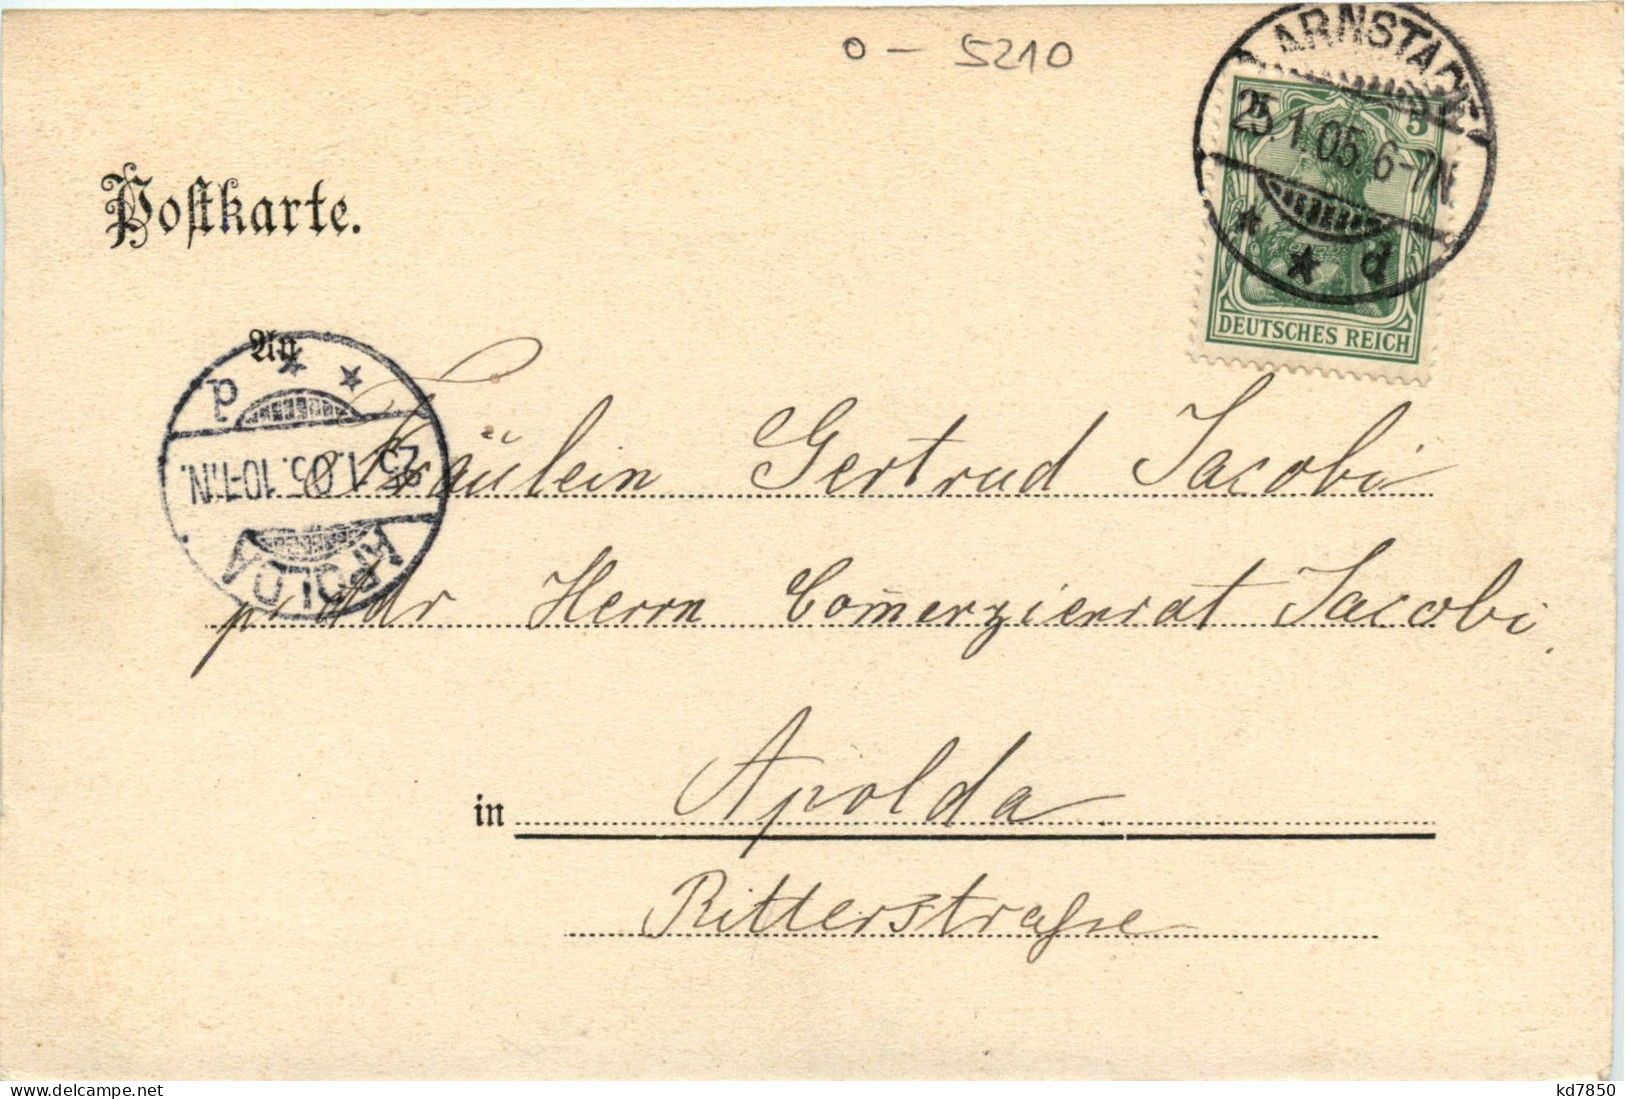 0 - 5210
ARNSTADT
25.1.05.6-7N.
* * d
5
DEUTSCHES REICH
Postkarte.
An
d * *
25.1.05.10-11N.
APOLDA
Fräulein Gertrud Jacobi
p. Adr Herrn Com̅erzienrat Jacobi.
in Apolda
Ritterstraße
www.delcampe.net
kd7850